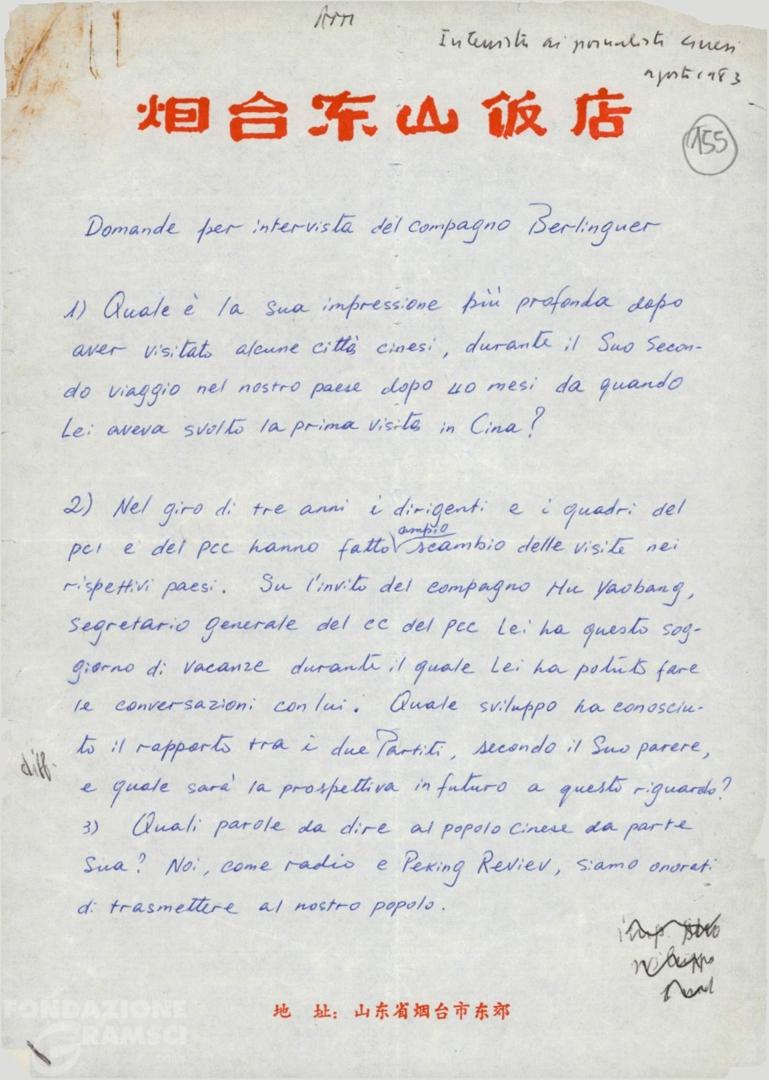 Intervista ai giornalisti cinesi
agosto 1983
烟台东山饭店
155
Domande per intervista del compagno Berlinguer
1) Quale è la sua impressione più profonda dopo
aver visitato alcune città cinesi, durante il Suo secon-
do viaggio nel nostro paese dopo 40 mesi da quando
Lei aveva svolto la prima visita in Cina?
2) Nel giro di tre anni i dirigenti e i quadri del
PCI e del PCC hanno fatto ampio scambio delle visite nei
rispettivi paesi. Su l'invito del compagno Hu Yaobang,
segretario generale del CC del PCC Lei ha questo sog-
giorno di vacanze durante il quale Lei ha potuto fare
le conversazioni con lui. Quale sviluppo ha conosciu-
to il rapporto tra i due Partiti, secondo il Suo parere,
diff.
e quale sarà la prospettiva in futuro a questo riguardo?
3) Quali parole da dire al popolo cinese da parte
Sua? Noi, come radio e Peking Reviev, siamo onorati
di trasmettere al nostro popolo.
地 址: 山东省烟台市东郊
FONDAZIONE
GRAMSCI